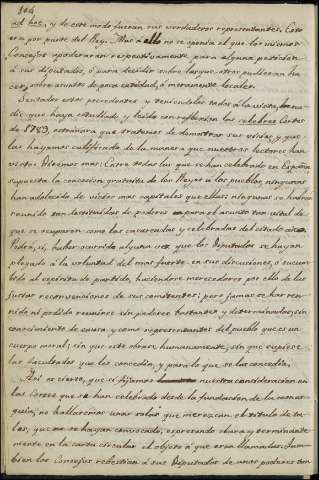 104
ad hoc, y de este modo fueran sus verdaderos representantes. Esto
era por parte del Rey. Mas á ello no se oponia el que los mismos
Concejos apoderaran respectivamente para alguna peticion
á sus diputados, ó para decidir sobre las que otros pudieran ha
cer, sobre asuntos de poca entidad, ó meramente locales.
Sentados estos precedentes y teniéndolos todos á la vista,
die que haya estudiado y leido con reflexion las celebres Cortes
de 1789, estrañará que tratemos de demostrar sus vicios, y que
las hayamos calificado de la manera que nuestros lectores han
visto. Diremos mas: Entre todas las que se han celebrado en España
supuesta la concesion gratuita de los Reyes á los pueblos, ningunas
han adolecido de vicios mas capitales que ellas: ningunas se habian
reunido tan destituidas de poderes para el asunto tan vital de
que se ocuparon como las convocadas y celebradas del citado año.
Podrá, sí, haber ocurrido alguna vez que los Diputados se hayan
plegado á la voluntad del mas fuerte, en sus discusiones, ó sucum
bido al espíritu de partido, haciéndose merecedores por ello de las
justas reconvenciones de sus comitentes; pero jamas se han reu
nido ni podido reunirse sin poderes bastantes y determinados, sin
conocimiento de causa, y como representantes del pueblo que es un
cuerpo moral; sin que este obrase humanamente, sin que supiese
las facultades que les concedia, y para lo que se las concedia.
Asi es cierto, que si fijamos nuestra consideracion en
las Cortes que se han celebrado desde la fundacion de la monar
quia, no hallaremos unas solas que merezcan el titulo de ta
les, que no se hayan convocado, espresando clara y terminante
mente en la carta circular el objeto á que eran llamadas. Tam
bien los Concejos revestian á sus Diputados de unos poderes tan